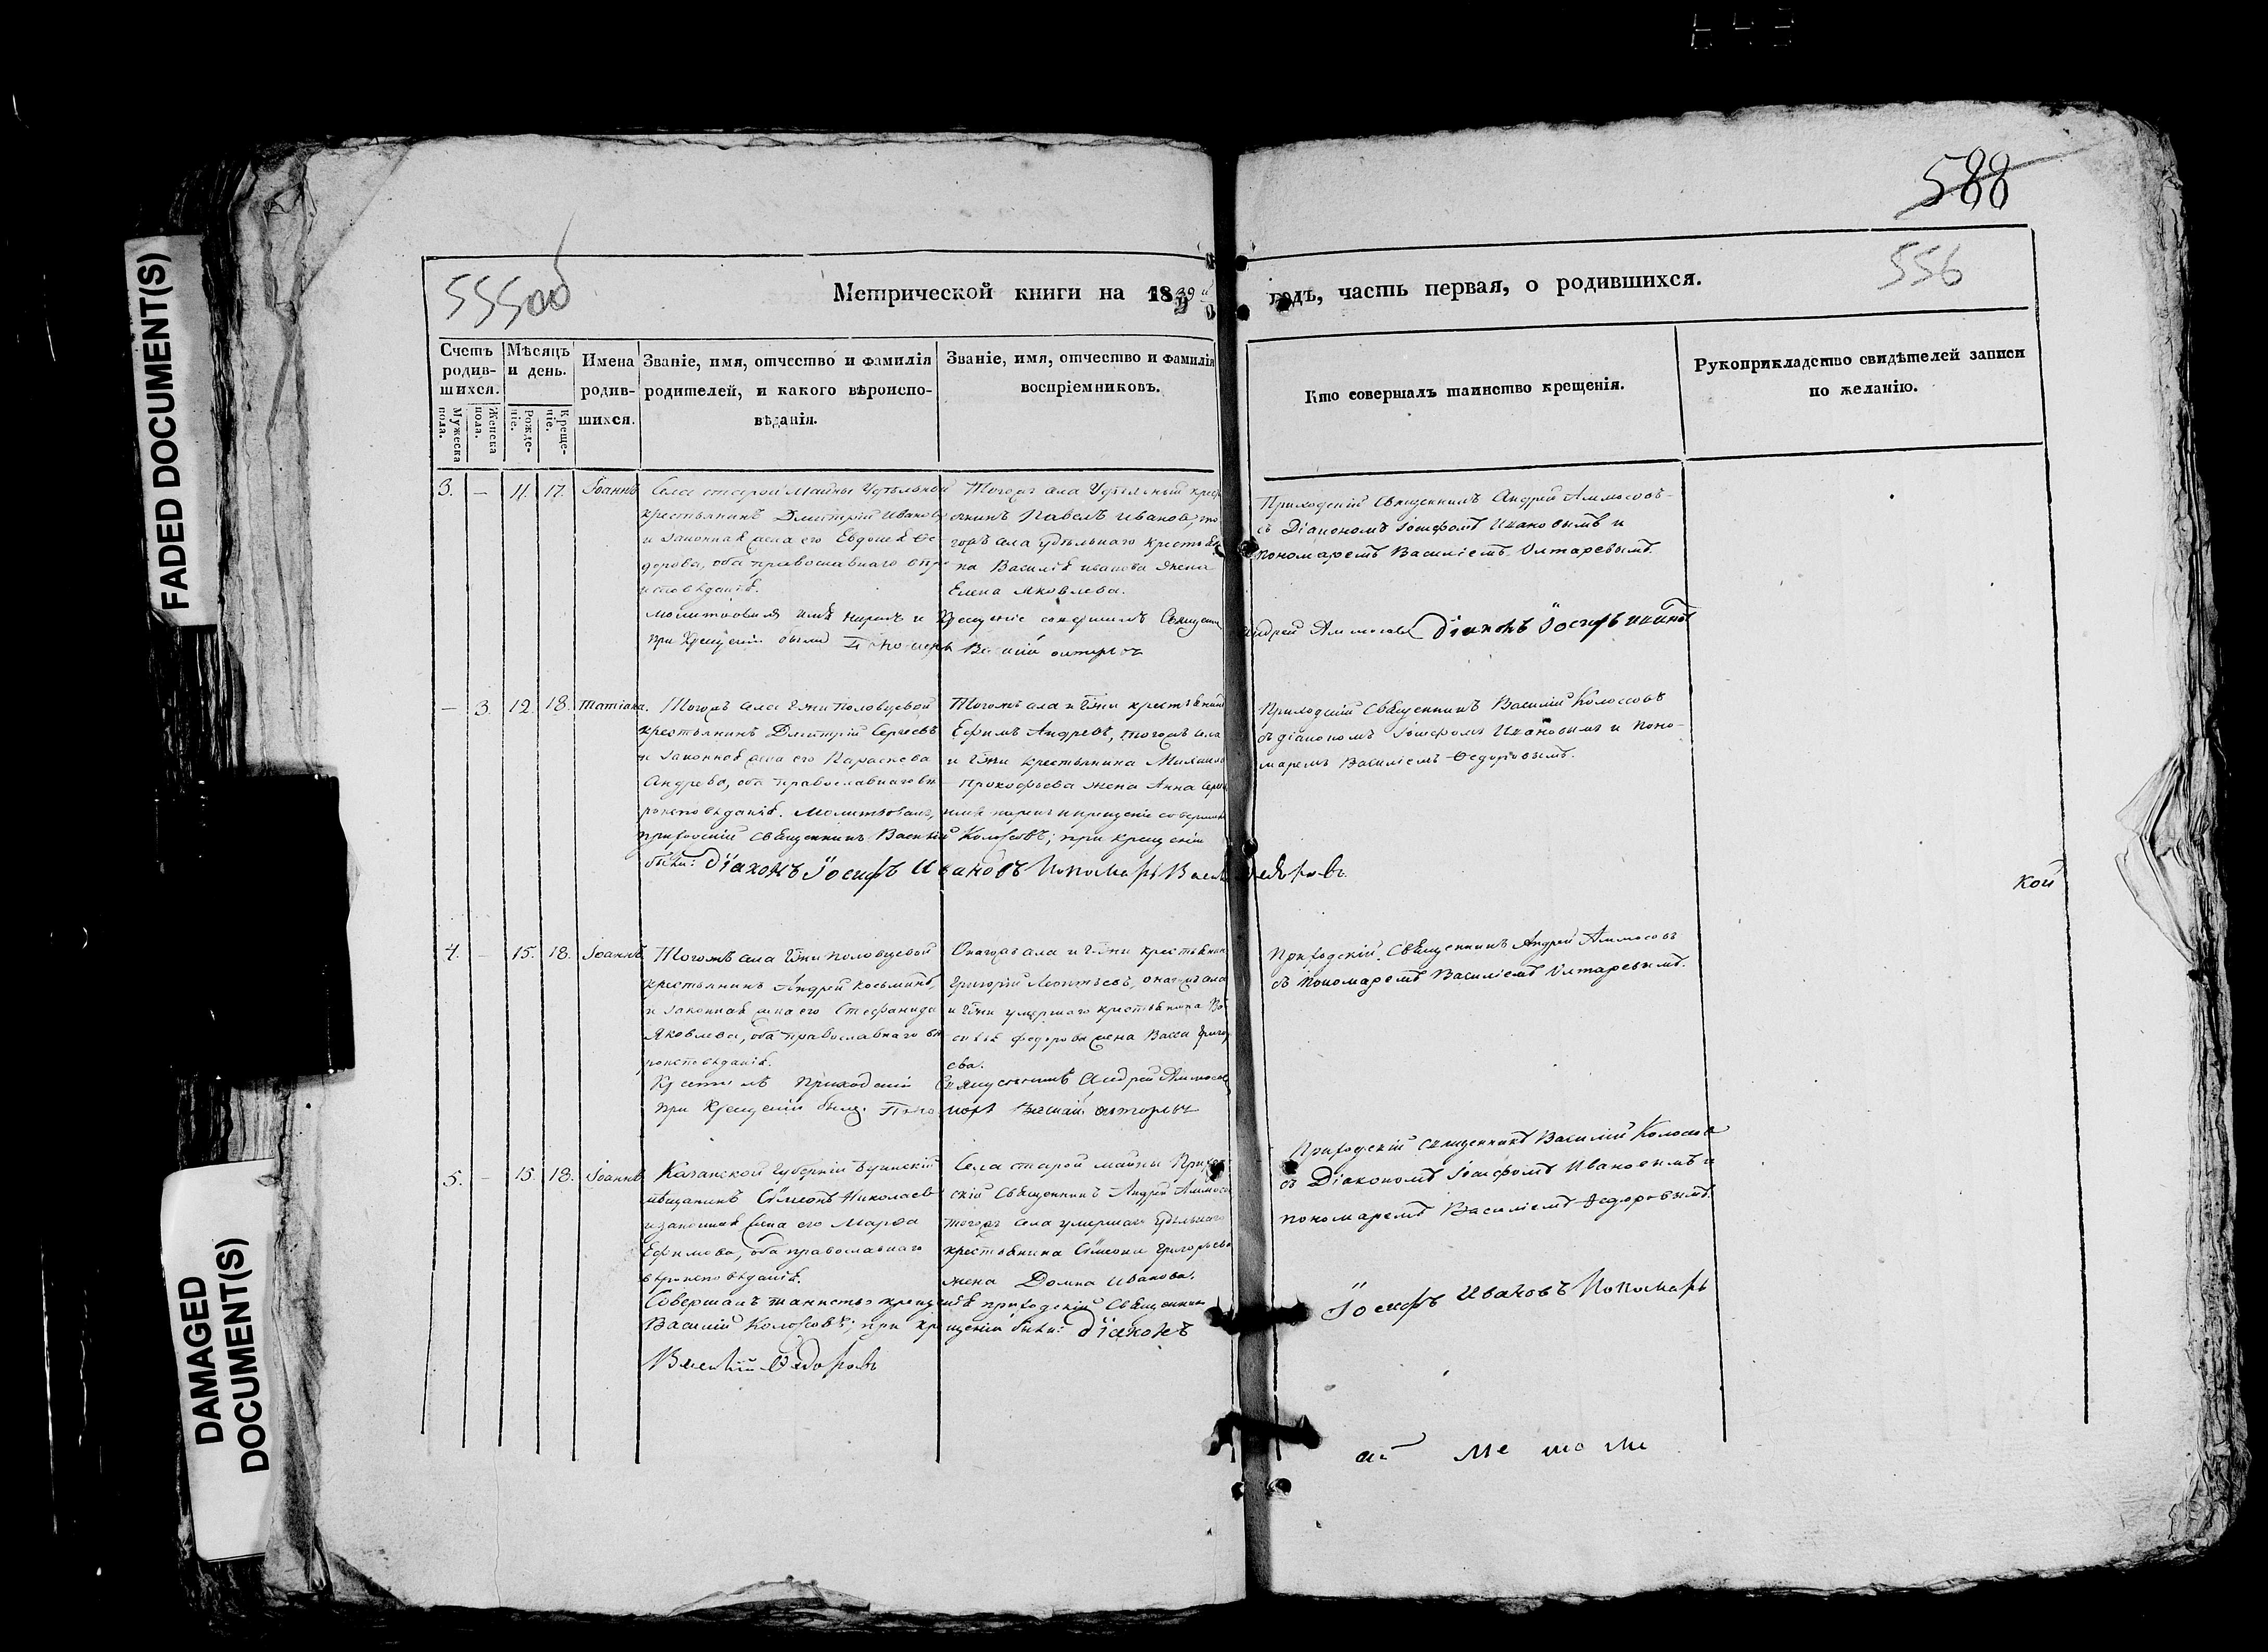 FADED DOCUMENT(S)
DAMAGED
DOCUMENT(S)
588
555об
556
Метрической книги на 1839й годъ, часть первая, о родившихся.
Счетъ родив-шихся.
Мужеска пола.
Женска пола.
Мѣсяцъ и день.
Рожде-ніе.
Креще-ніе.
Имена родив-шихся.
Званіе, имя, отчество и фамилія
родителей, и какого вѣроиспо-
вѣданія.
Званіе, имя, отчество и фамилія
воспріемниковъ.
Кто совершалъ таинство крещенія.
Рукоприкладство свидѣтелей записи
по желанію.
3. — 11. 17. Іоаннъ
Села старой Майны Удѣльной
крестьянинъ Дмитрій Ивановъ
и законная жена его Евдокія Ѳе
дорова, оба православнаго
исповѣданія.
Тогожъ села Удѣльный
Павелъ Ивановъ, то
гожъ села удѣльнаго крестьяни
на Василія Иванова жена
Елена Яковлева.
Приходскій Священникъ Андрей Аммосовъ
съ Діакономъ Іосифомъ Ивановымъ и
пономаремъ Василіемъ Олтаревымъ.
Молитвовалъ имя нарекъ и Крещеніе совершилъ Священ
Андрей Аммосовъ Діаконъ Іосифъ Ивановъ
при Крещеніи были Пономарь Василій Олтаревъ
— 3. 12. 18. Татіана.
Тогожъ села Гжи Половцовой
крестьянинъ Дмитрій Сергѣевъ
и законная жена его Параскева
Андреева, оба православнаго вѣ
роисповѣданія. Молитвовалъ, имя нарекъ и крещеніе совершилъ
приходскій Священникъ Василій Колосовъ; при крещеніи
были: Діаконъ Іосифъ Ивановъ Пономарь Василій Ѳедоровъ
Тогожъ села и Гжи крестьянинъ
Ефимъ Андреевъ, тогожъ села
и Гжи крестьянина Михаила
Прокофьева жена Анна
Приходскій Священникъ Василій Колосовъ
съ діакономъ Іосифомъ Ивановымъ и поно-
маремъ Василіемъ Ѳедоровымъ.
кой
4. — 15. 18. Іоаннъ.
Тогожъ села Гжи Половцовой
крестьянинъ Андрей Косьминъ,
и законная жена его Стефанида
Яковлева, оба православнаго вѣ
роисповѣданія.
Онагожъ села и Гжи крестьянинъ
Григорій Леонтьевъ, онагожъ села
и Гжи умершаго крестьянина Ва
силія Федорова жена Васса Григор
ева.
Приходскій Священникъ Андрей Аммосовъ
съ пономаремъ Василіемъ Олтаревымъ.
Крестилъ Приходскій Священникъ Андрей Аммосовъ
при Крещеніи былъ Пономарь Василій Олтаревъ
5. — 15. 18. Іоаннъ
Казанской Губерніи
мѣщанинъ Сѵмеонъ Николаевъ
и законная жена его Марѳа
Ефимова, оба православнаго
вѣроисповѣданія.
Села старой майны Приход
скій Священникъ Андрей Аммосов
тогожъ села умершаго удѣльнаго
крестьянина Сѵмеона Григорьева
жена Домна Иванова.
Приходскій священникъ Василій Колосовъ
съ Діакономъ Іосифомъ Ивановымъ и
пономаремъ Василіемъ Ѳедоровымъ.
Совершалъ таинство крещенія приходскій Священникъ
Василій Колосовъ; при крещеніи были: Діаконъ
Іосифъ Ивановъ Пономарь
Василій Ѳедоровъ